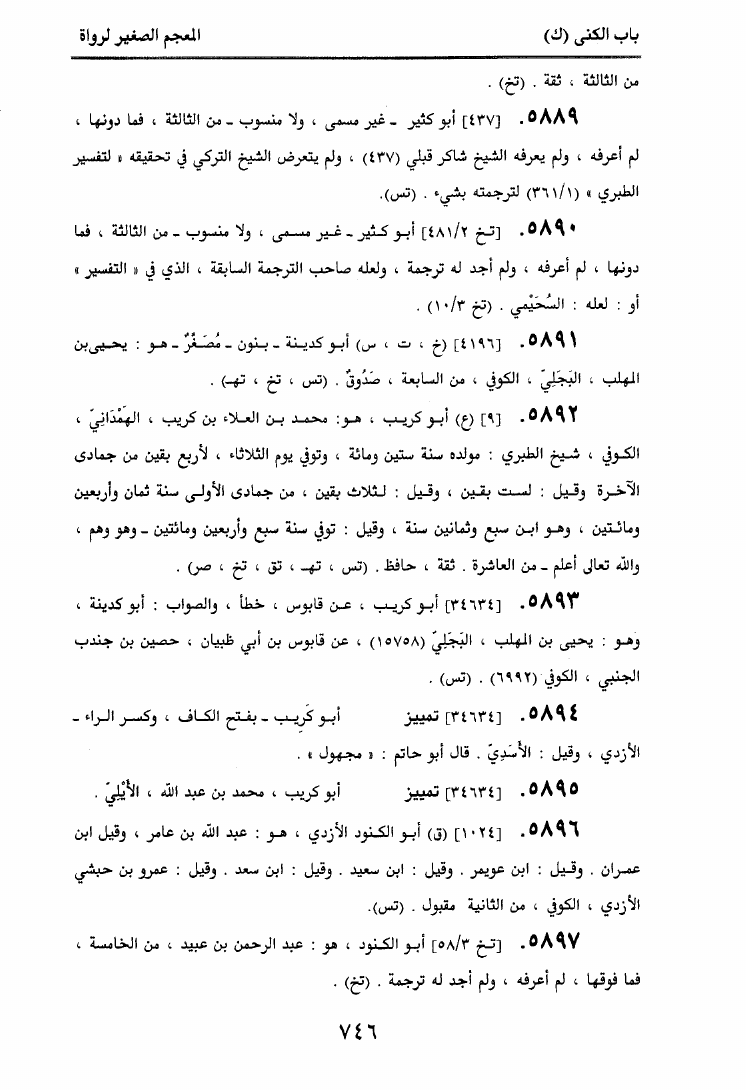 باب الكنى (ك) المعجم الصغير لرواة
من الثالثة ، ثقة . (تخ) .
٥٨٨٩. [٤٣٧] أبو كثير ـ غير مسمى ، ولا منسوب ـ من الثالثة ، فما دونها ،
لم أعرفه ، ولم يعرفه الشيخ شاكر قبلي (٤٣٧) ، ولم يتعرض الشيخ التركي في تحقيقه « لتفسير
الطبري » (٣٦١/١) لترجمته بشيء . (تس).
٥٨٩٠. [تخ ٤٨١/٢] أبو كثير ـ غير مسمى ، ولا منسوب ـ من الثالثة ، فما
دونها ، لم أعرفه ، ولم أجد له ترجمة ، ولعله صاحب الترجمة السابقة ، الذي في « التفسير »
أو : لعله : السُحَيْمي . (تخ ١٠/٣) .
٥٨٩١. [٤١٩٦] (خ ، ت ، س) أبو كدينة ـ بنون ـ مُصَغَّرٌ ـ هو : يحيى بن
المهلب ، البَجَلِيّ ، الكوفي ، من السابعة ، صَدُوقٌ . (تس ، تخ ، تهـ) .
٥٨٩٢. [٩] (ع) أبو كريب ، هو: محمد بن العلاء بن كريب ، الهَمْدَانِيّ ،
الكوفي ، شيخ الطبري : مولده سنة ستين ومائة ، وتوفي يوم الثلاثاء ، لأربع بقين من جمادى
الآخرة وقيل : لست بقين ، وقيل : لثلاث بقين ، من جمادى الأولى سنة ثمان وأربعين
ومائتين ، وهو ابن سبع وثمانين سنة ، وقيل : توفي سنة سبع وأربعين ومائتين ـ وهو وهم ،
والله تعالى أعلم ـ من العاشرة . ثقة ، حافظ . (تس ، تهـ ، تق ، تخ ، صر) .
٥٨٩٣. [٣٤٦٣٤] أبو كريب ، عن قابوس ، خطأ ، والصواب : أبو كدينة ،
وهو : يحيى بن المهلب ، البَجَلِيّ (١٥٧٥٨) ، عن قابوس بن أبي ظبيان ، حصين بن جندب
الجنبي ، الكوفي (٦٩٩٢) . (تس) .
٥٨٩٤. [٣٤٦٣٤] تمييز أبو كَرِيب ـ بفتح الكاف ، وكسر الراء ـ
الأزدي ، وقيل : الأَسَدِيّ . قال أبو حاتم : « مجهول » .
٥٨٩٥. [٣٤٦٣٤] تمييز أبو كريب ، محمد بن عبد الله ، الأَيْلِيّ .
٥٨٩٦. [١٠٢٤] (ق) أبو الكنود الأزدي ، هو : عبد الله بن عامر ، وقيل ابن
عمران . وقيل : ابن عويمر . وقيل : ابن سعيد . وقيل : ابن سعد . وقيل : عمرو بن حبشي
الأزدي ، الكوفي ، من الثانية مقبول . (تس).
٥٨٩٧. [تخ ٥٨/٣] أبو الكنود ، هو : عبد الرحمن بن عبيد ، من الخامسة ،
فما فوقها ، لم أعرفه ، ولم أجد له ترجمة . (تخ) .
٧٤٦